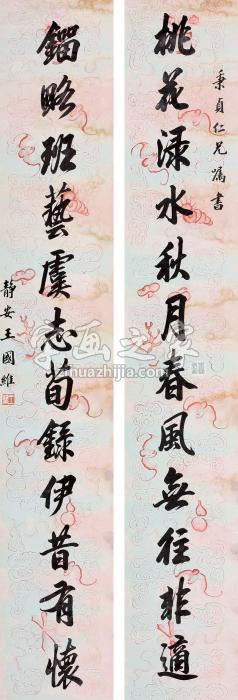 秉貞仁兄嘱書
桃花渌水秋月春風無往非適
鎦略班藝虞志荀錄伊昔有懷
靜安王國維
字画之家
zihuazhijia.com